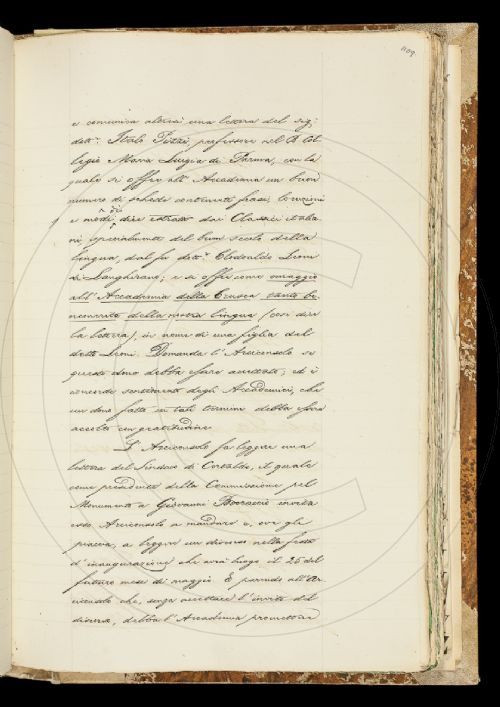 1109
e comunica altresì una lettera del sig:
dott.r Italo Pizzi, professore nel R. Col-
legio Maria Luigia di Parma, con la
quale si offre all'Accademia un buon
numero di schede contenenti frasi, locuzioni
e modi di dire estratti dai Classici italia
ni, specialmente del buon secolo della
lingua, dal fu dott.r Clodoaldo Leoni
di Langhirano; e si offre come omaggio
all'Accademia della Crusca tanto be
nemerita della nostra lingua (così dice
la lettera), in nome di una figlia del
detto Leoni. Domanda l'Arciconsolo se
questo dono debba essere accettato; ed è
concorde sentimento degli Accademici, che
un dono fatto in tali termini debba essere
accolto con gratitudine.
L'Arciconsolo fa leggere una
lettera del Sindaco di Certaldo, il quale
come presidente della Commissione pel
Monumento a Giovanni Boccaccio invita
esso Arciconsolo a mandare o, ove gli
piaccia, a leggere un discorso nella festa
d'inaugurazione che avrà luogo il 25 del
futuro mese di maggio. E parendo all'Ar
ciconsolo che, senza accettare l'invito del
discorso, debba l'Accademia promettere